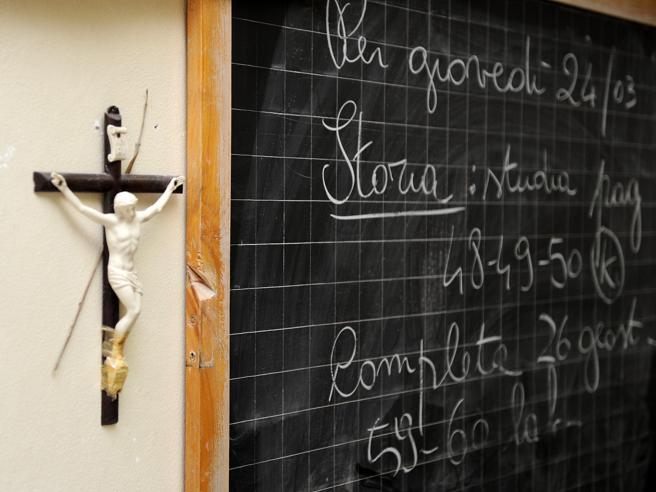 Per giovedì 24/03
Storia : studia pag
48-49-50 (K)
Completa 26 geost.
59-60